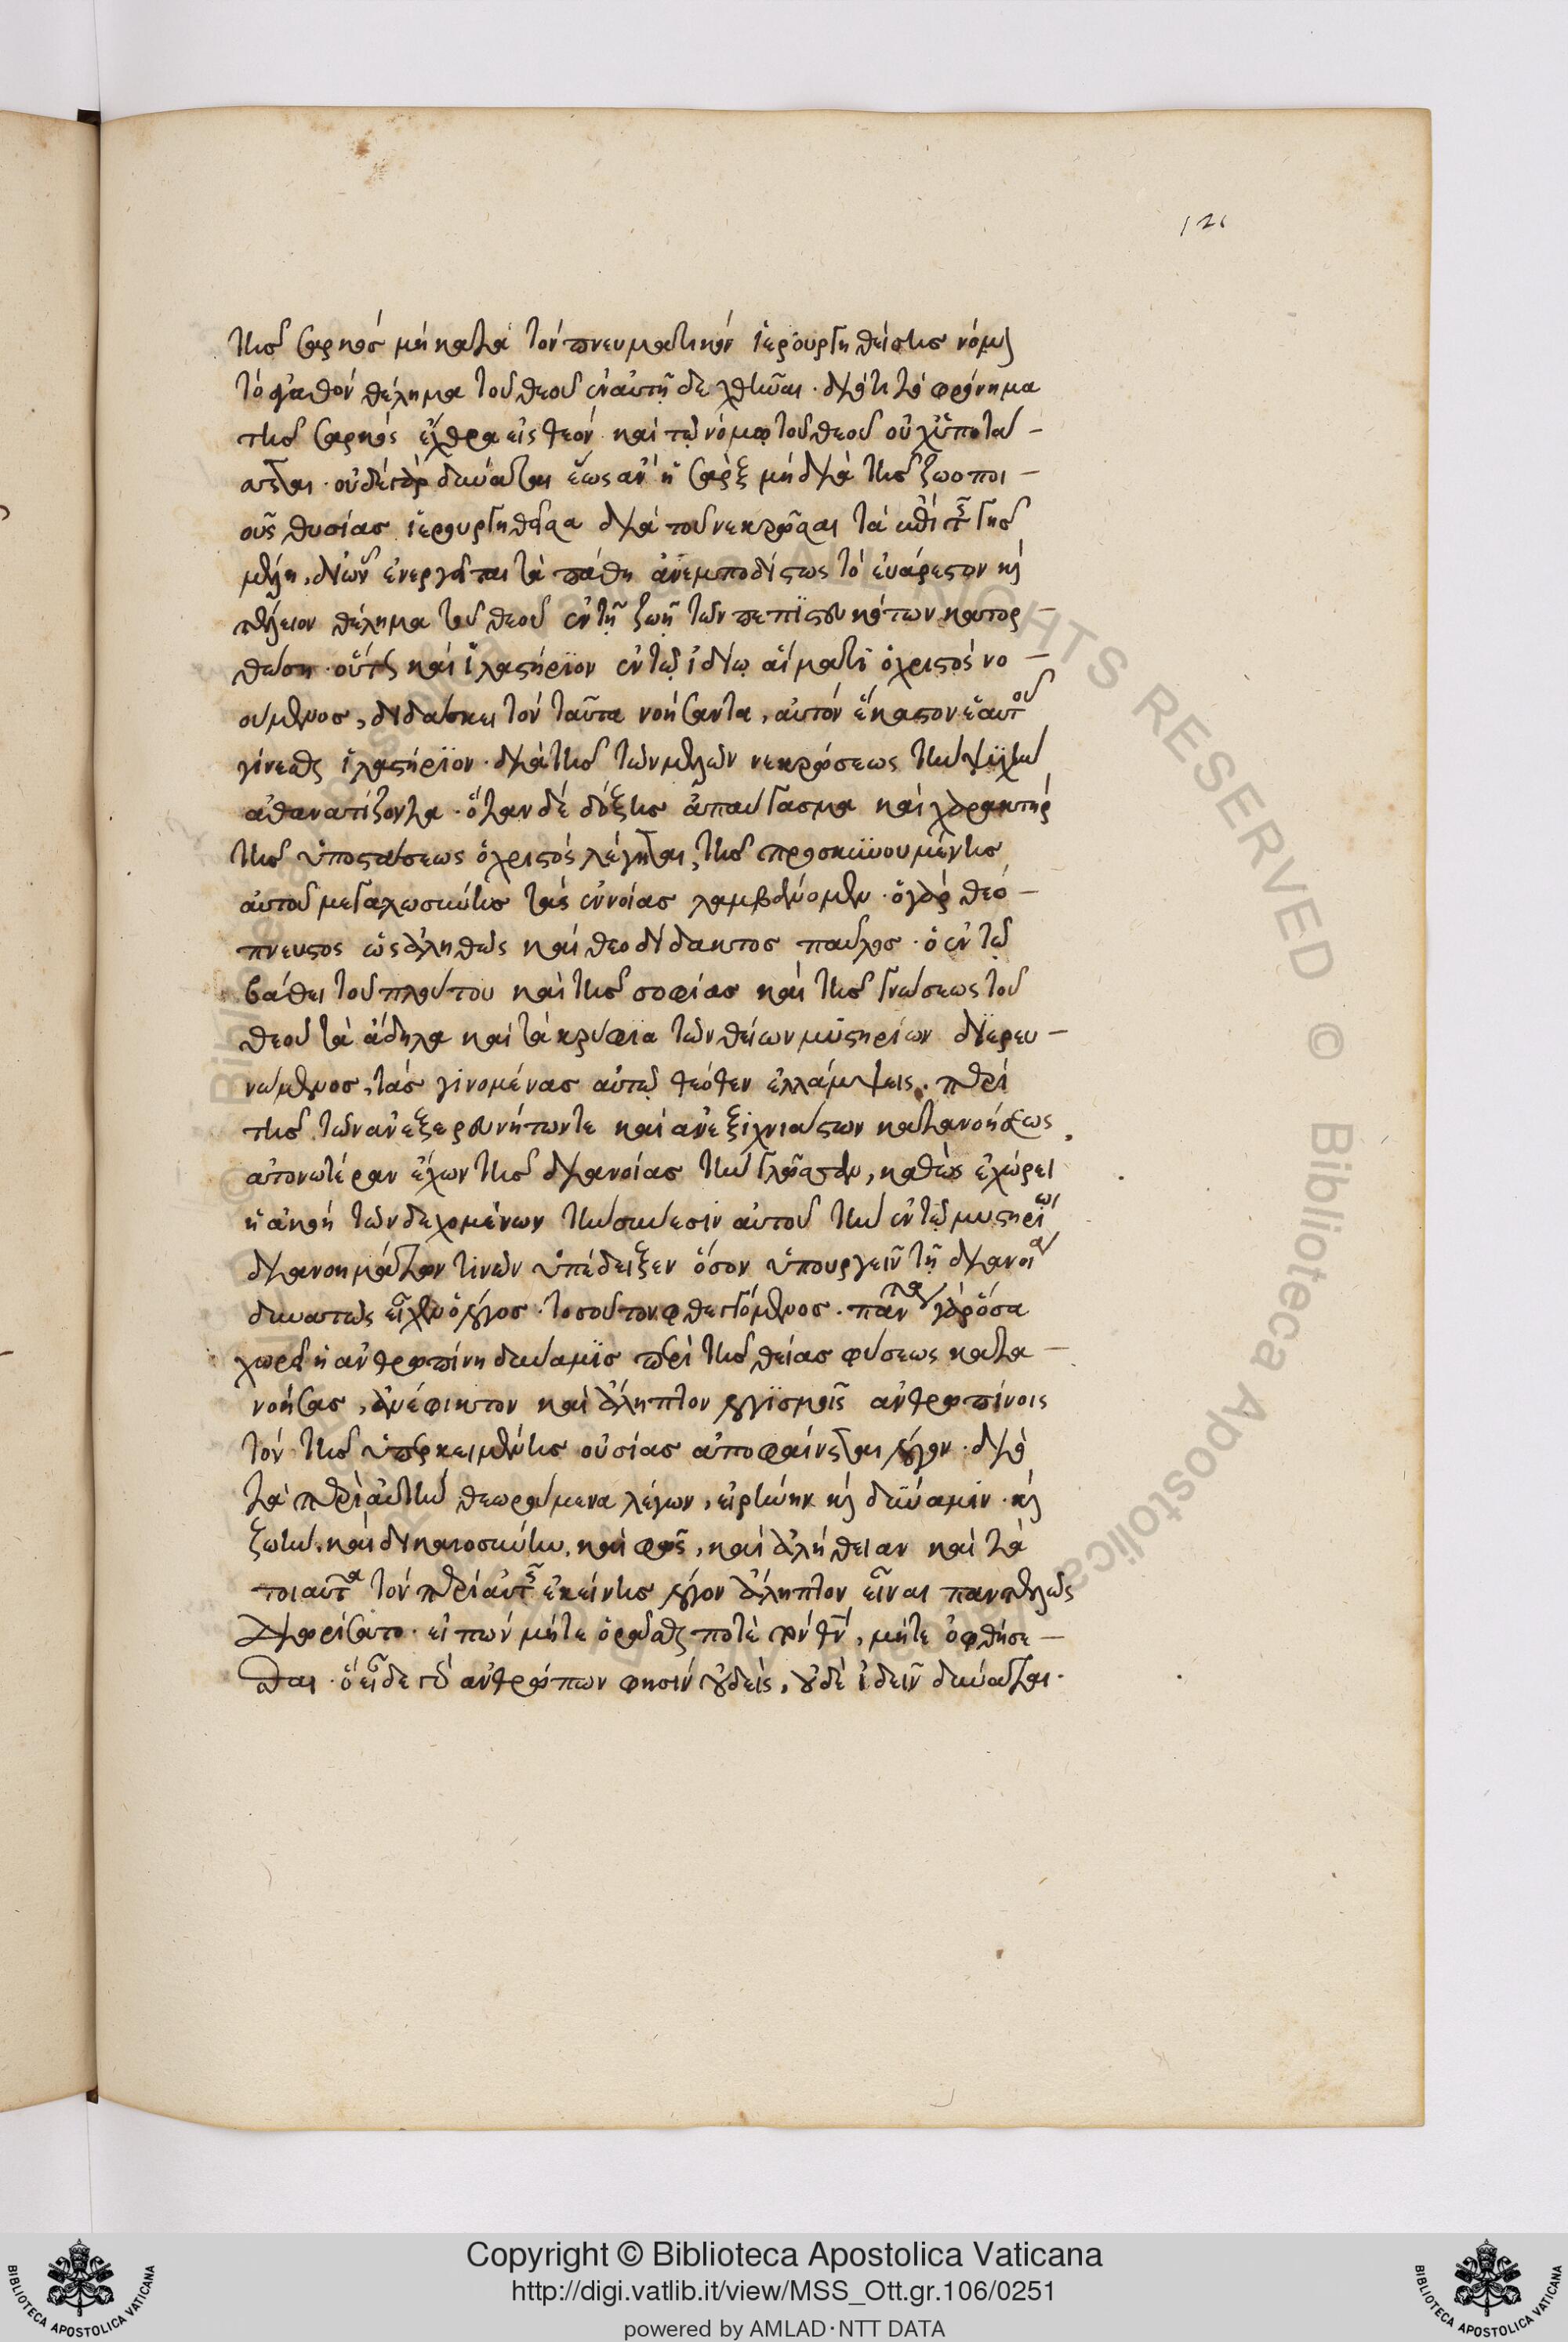 121
τῆς σαρκός μή κατά τόν πνευματικόν ἱερουργηθείσης νόμον
τό ἀγαθόν θέλημα τοῦ θεοῦ ἐν αὐτῇ δειχθῆναι · διότι τό φρόνημα
τῆς σαρκός ἔχθρα εἰς θεόν · καί τῷ νόμῳ τοῦ θεοῦ οὐχ ὑποτάσ-
σεται · οὐδέ γάρ δύναται ἕως ἄν ἡ σάρξ μή διά τῆς ζωοποι-
οῦς θυσίας ἱερουργηθεῖσα διά τοῦ νεκρῶσαι τά ἐπί τῆς γῆς
μέλη, δι' ὧν ἐνεργεῖται τά πάθη ἀνεμποδίστως τό εὐάρεστον καί
τέλειον θέλημα τοῦ θεοῦ ἐν τῇ ζωῇ τῶν πεπιστευκότων κατορ-
θώση · οὕτως καί ἱλαστήριον ἐν τῷ ἰδίῳ αἵματι ὁ χριστός νο-
ούμενος, διδάσκει τόν ταῦτα νοήσαντα, αὐτόν ἕκαστον ἑαυτοῦ
γίνεσθαι ἱλαστήριον · διά τῆς τῶν μελῶν νεκρώσεως τήν ψυχήν
ἀθανατίζοντα · ὅταν δέ δόξης ἀπαύγασμα καί χαρακτήρ
τῆς ὑποστάσεως ὁ χριστός λέγηται, τῆς προσκυνουμένης
αὐτοῦ μεγαλωσύνης τάς ἐννοίας λαμβάνομεν · ὁ γάρ θεό-
πνευστος ὡς ἀληθῶς καί θεοδίδακτος παῦλος · ὁ ἐν τῷ
βάθει τοῦ πλούτου καί τῆς σοφίας καί τῆς γνώσεως τοῦ
θεοῦ τά ἄδηλα καί τά κρύφια τῶν θείων μυστηρίων διερευ-
νώμενος, τάς γινομένας αὐτῷ θεόθεν ἐλλάμψεις. περί
τῆς τῶν ἀνεξερευνήτων τε καί ἀνεξιχνιάστων κατανοήσεως,
ἀτονωτέραν ἔχων τῆς διανοίας τήν γλῶσσαν, καθώς ἐχώρει
ἡ ἀκοή τῶν δεχομένων τήν σύνεσιν αὐτοῦ τήν ἐν τῷ μυστηρίωι
διανοημάτων τινῶν ὑπέδειξεν ὅσον ὑπουργεῖν τῇ διανοία
δυνατῶς εἶχεν ὁ λόγος · τοσοῦτον φθεγγόμενος · πάντα γάρ ὅσα
χωρεῖ ἡ ἀνθρωπίνη δύναμις περί τῆς θείας φύσεως κατα-
νοήσας, ἀνέφικτον καί ἄληπτον λογισμοῖς ἀνθρωπίνοις
τόν τῆς ὑπερκειμένης οὐσίας ἀποφαίνεται λόγον · διό
τά περί αὐτήν θεωρούμενα λέγων, εἰρήνην καί δύναμιν · καί
ζωήν, καί δικαιοσύνην, καί φῶς, καί ἀλήθειαν καί τά
τοιαῦτα τόν περί αὐτῆς ἐκείνης λόγον ἄληπτον εἶναι παντελῶς
διωρίσατο · εἰπών μήτε ὁρᾶσθαι ποτέ τόν θεόν, μήτε ὀφθήσε-
σθαι · ὅν εἶδε γάρ ἀνθρώπων φησίν οὐδείς, οὐδέ ἰδεῖν δύναται ·
Copyright © Biblioteca Apostolica Vaticana
http://digi.vatlib.it/view/MSS_Ott.gr.106/0251
powered by AMLAD·NTT DATA